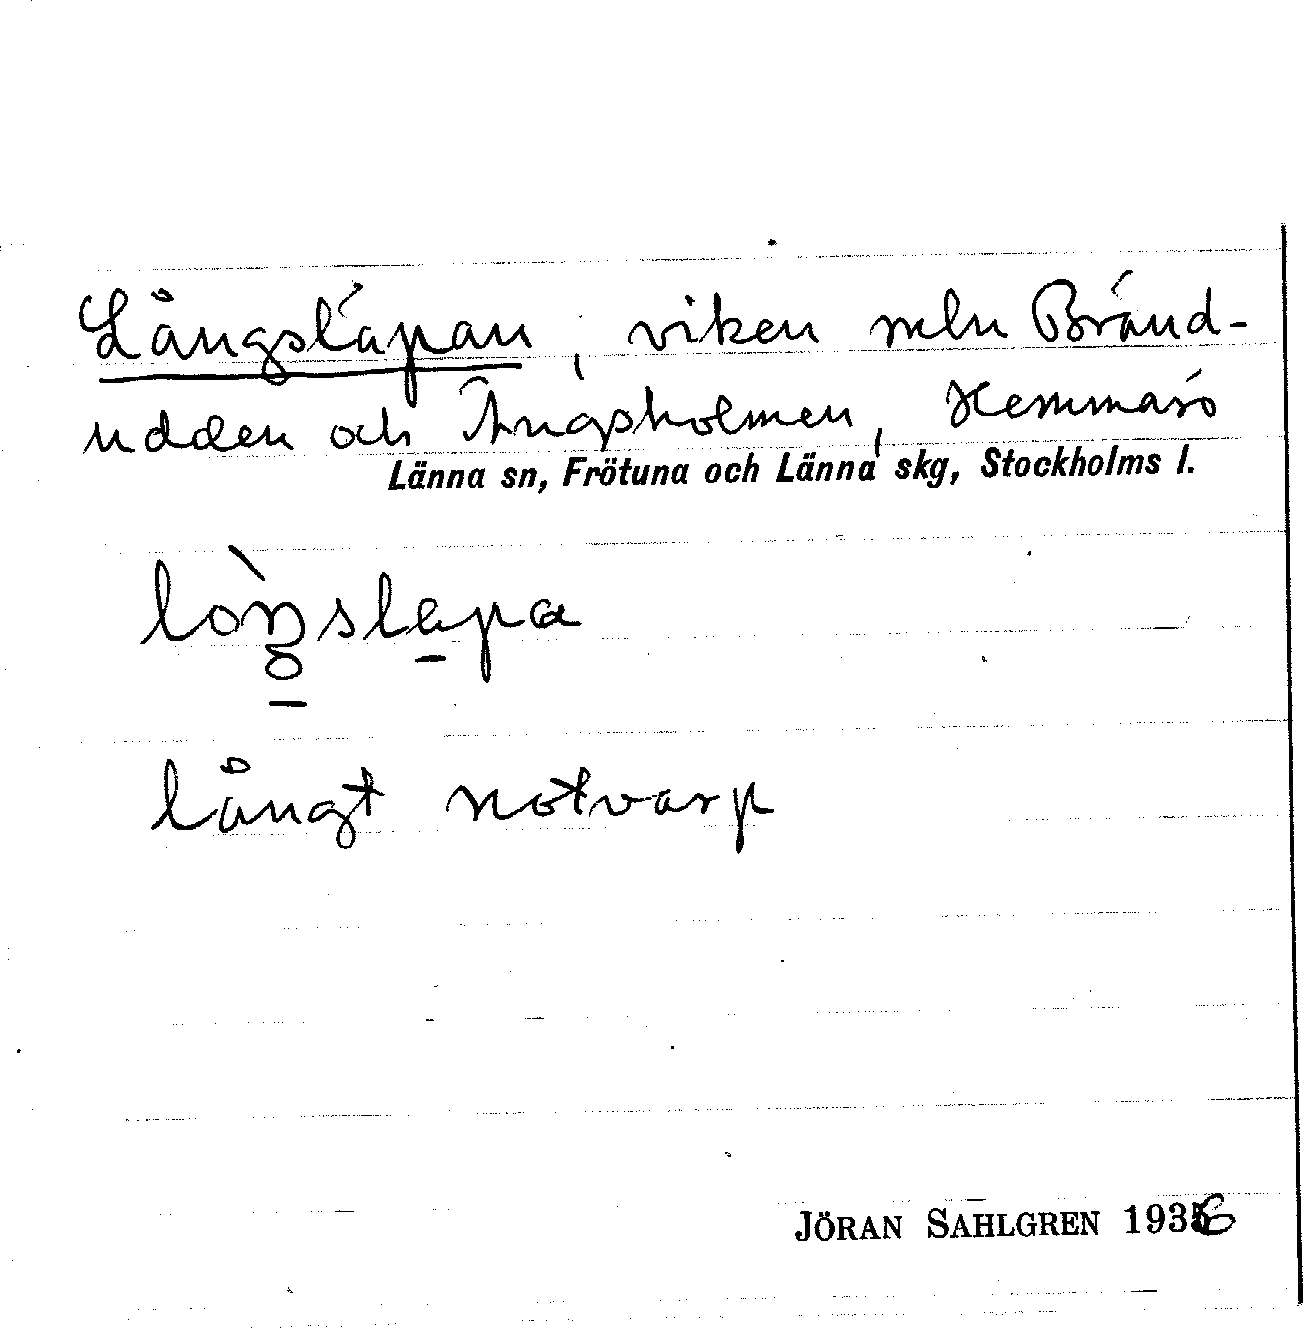 Långsläpan, viken mln Bränd-
udden och Ängsholmen, Hemmarö
Länna sn, Frötuna och Länna skg, Stockholms l.
lòŋslepa
långt notvarp
JÖRAN SAHLGREN 1936